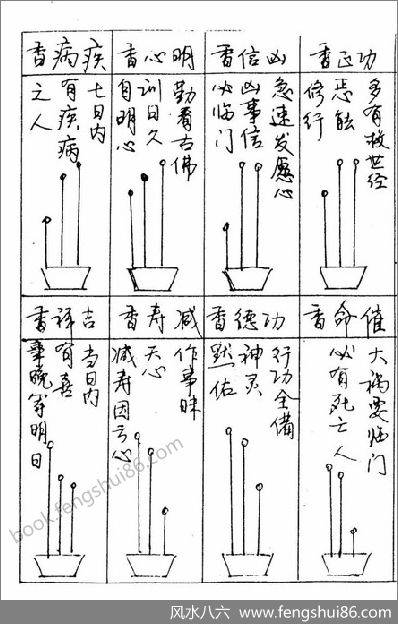 功正香
多有救世经
修行
凶信香
急速发愿心
凶事信
必临门
明心香
勤看古佛
训日久
自明心
疾病香
七日内
有疾病
之人
催命香
大祸要临门
必有死亡人
功德香
行功全備
神灵
默佑
减寿香
作事昧
天心
减寿因亏心
吉祥香
当日内
有喜
明日
book.fengshui86.com
风水八六 www.fengshui86.com